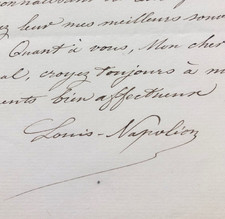 leur mes meilleurs
Quant à vous, Mon cher
al, croyez toujours à m
ents bien affectueux
Louis-Napoléon